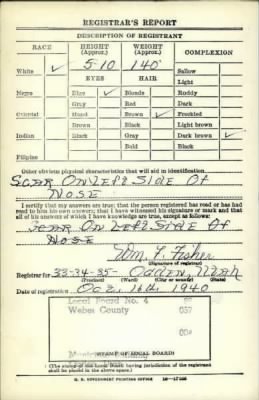 REGISTRAR'S REPORT
DESCRIPTION OF REGISTRANT
RACE HEIGHT (Approx.) WEIGHT (Approx.) COMPLEXION
White ✓ 5-10 140 Sallow
EYES HAIR Light
Negro Blue ✓ Blonde Ruddy
Gray Red Dark
Oriental Hazel Brown ✓ Freckled
Brown Black Light brown
Indian Black Gray Dark brown ✓
Bald Black
Filipino
Other obvious physical characteristics that will aid in identification
SCAR ON LEFT SIDE OF
NOSE
I certify that my answers are true; that the person registered has read or has had
read to him his own answers; that I have witnessed his signature or mark and that
all of his answers of which I have knowledge are true, except as follows:
SCAR ON LEFT SIDE OF
NOSE
Wm. T. Fisher
(Signature of registrar)
Registrar for 33-34-35- Ogden, Utah
(Precinct) (Ward) (City or county) (State)
Date of registration Oct. 16th 1940
Local Board No. 4
Weber County 057
STAMP OF LOCAL BOARD
(The stamp of the Local Board having jurisdiction of the registrant shall
be placed in the above space.)
U. S. GOVERNMENT PRINTING OFFICE